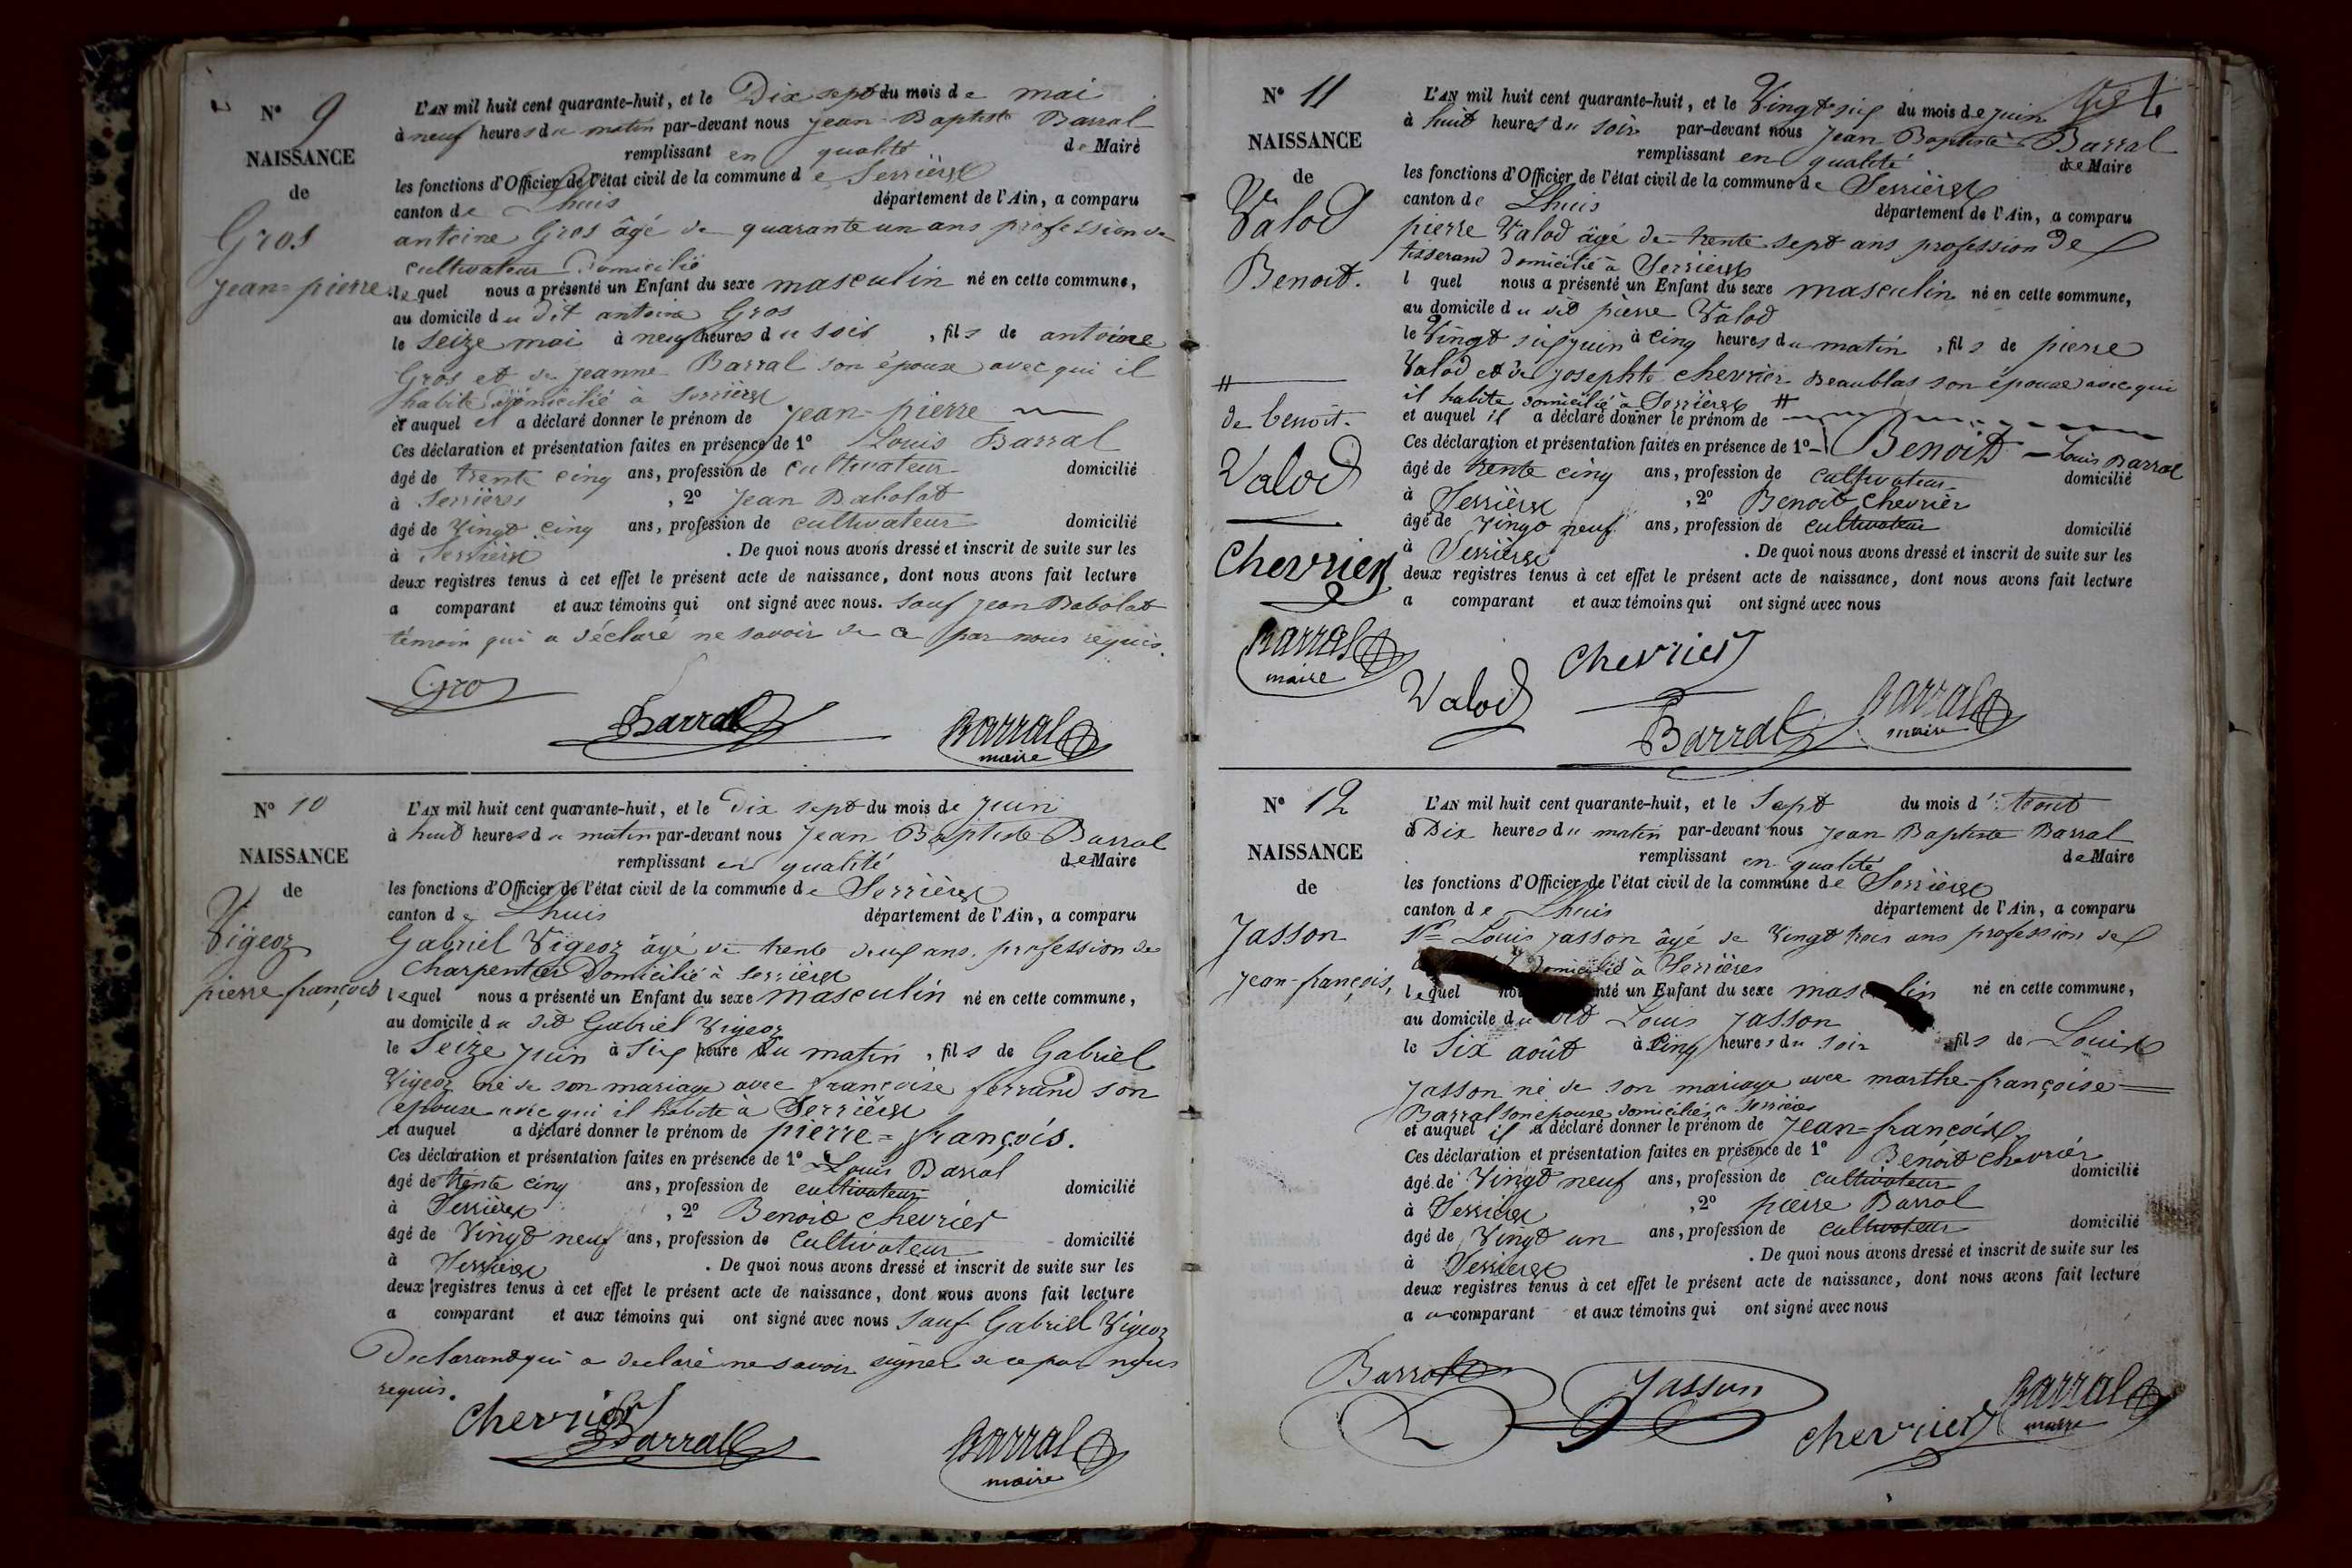 N° 9
NAISSANCE
de
Gros
jean=pierre
L'AN mil huit cent quarante-huit, et le Dix sept du mois de mai
à neuf heures du matin par-devant nous jean Baptiste Barral
remplissant en qualité de Maire
les fonctions d'Officier de l'état civil de la commune de Serrières
canton de Lhuis département de l'Ain, a comparu
antoine Gros âgé de quarante un ans profession de
cultivateur Domicilié
lequel nous a présenté un Enfant du sexe masculin né en cette commune,
au domicile du dit antoine Gros
le seize mai à neuf heures du soir, fils de antoine
Gros et de jeanne Barral son épouse avec qui il
habite domicilié à Serrières
et auquel il a déclaré donner le prénom de jean-pierre
Ces déclaration et présentation faites en présence de 1° Louis Barral
âgé de trente cinq ans, profession de cultivateur domicilié
à Serrières, 2° jean Babolat
âgé de Vingt cinq ans, profession de cultivateur domicilié
à Serrières. De quoi nous avons dressé et inscrit de suite sur les
deux registres tenus à cet effet le présent acte de naissance, dont nous avons fait lecture
a comparant et aux témoins qui ont signé avec nous. sauf jean Babolat
témoin qui a déclaré ne savoir de ce par nous requis.
Gros
Barral
Barral
maire
N° 10
NAISSANCE
de
Vigeoz
pierre françois
L'AN mil huit cent quarante-huit, et le dix sept du mois de juin
à huit heures du matin par-devant nous jean Baptiste Barral
remplissant en qualité de Maire
les fonctions d'Officier de l'état civil de la commune de Serrières
canton de Lhuis département de l'Ain, a comparu
Gabriel Vigeoz âgé de trente deux ans, profession de
charpentier Domicilié à Serrières
lequel nous a présenté un Enfant du sexe masculin né en cette commune,
au domicile du dit Gabriel Vigeoz
le Seize juin à Six heure du matin, fils de Gabriel
Vigeoz né de son mariage avec françoise ferrand son
epouse avec qui il habite à Serrières
et auquel a déclaré donner le prénom de pierre=françois.
Ces déclaration et présentation faites en présence de 1° Louis Barral
âgé de trente cinq ans, profession de cultivateur domicilié
à Serrières, 2° Benoit chevrier
âgé de Vingt neuf ans, profession de cultivateur domicilié
à Serrières. De quoi nous avons dressé et inscrit de suite sur les
deux registres tenus à cet effet le présent acte de naissance, dont nous avons fait lecture
a comparant et aux témoins qui ont signé avec nous sauf Gabriel Vigeoz
Declarant qui a declaré ne savoir signer de ce par nous
requis.
chevrier
Barral
Barral
maire
N° 11
NAISSANCE
de
Valod
Benoit.
#
de benoit.
Valod
Chevrier
Barral
maire
L'AN mil huit cent quarante-huit, et le Vingt six du mois de juin
à huit heures du soir par-devant nous jean Baptiste Barral
remplissant en qualité de Maire
les fonctions d'Officier de l'état civil de la commune de Serrières
canton de Lhuis département de l'Ain, a comparu
pierre Valod âgé de trente sept ans profession de
tisserand domicilié à Serrières
l quel nous a présenté un Enfant du sexe masculin né en cette commune,
au domicile du dit pierre Valod
le Vingt six juin à cinq heures du matin, fils de pierre
Valod et de josephte chevrier Beaublas son épouse avec qui
il habite domicilié à Serrières #
et auquel il a déclaré donner le prénom de
Ces déclaration et présentation faites en présence de 1° Benoit Louis Barral
âgé de trente cinq ans, profession de cultivateur domicilié
à Serrières, 2° Benoit chevrier
âgé de Vingt neuf ans, profession de cultivateur domicilié
à Serrières. De quoi nous avons dressé et inscrit de suite sur les
deux registres tenus à cet effet le présent acte de naissance, dont nous avons fait lecture
a comparant et aux témoins qui ont signé avec nous
Valod
chevrier
Barral
Barral
maire
N° 12
NAISSANCE
de
Jasson
jean-françois,
L'AN mil huit cent quarante-huit, et le Sept du mois d'aout
à Dix heures du matin par-devant nous jean Baptiste Barral
remplissant en qualité de Maire
les fonctions d'Officier de l'état civil de la commune de Serrières
canton de Lhuis département de l'Ain, a comparu
Louis jasson âgé de Vingt trois ans profession de
domicilié à Serrières
lequel nté un Enfant du sexe masculin né en cette commune,
au domicile du dit Louis jasson
le Six août à Cinq heures du soir fils de Louis
jasson né de son mariage avec marthe françoise=
Barral son épouse domiciliés à Serrières
et auquel il a déclaré donner le prénom de jean=françois
Ces déclaration et présentation faites en présence de 1° Benoit chevrier
âgé de Vingt neuf ans, profession de cultivateur domicilié
à Serrières, 2° pierre Barral
âgé de Vingt un ans, profession de cultivateur domicilié
à Serrières. De quoi nous avons dressé et inscrit de suite sur les
deux registres tenus à cet effet le présent acte de naissance, dont nous avons fait lecture
a u comparant et aux témoins qui ont signé avec nous
Barral
Jasson
chevrier
Barral
maire